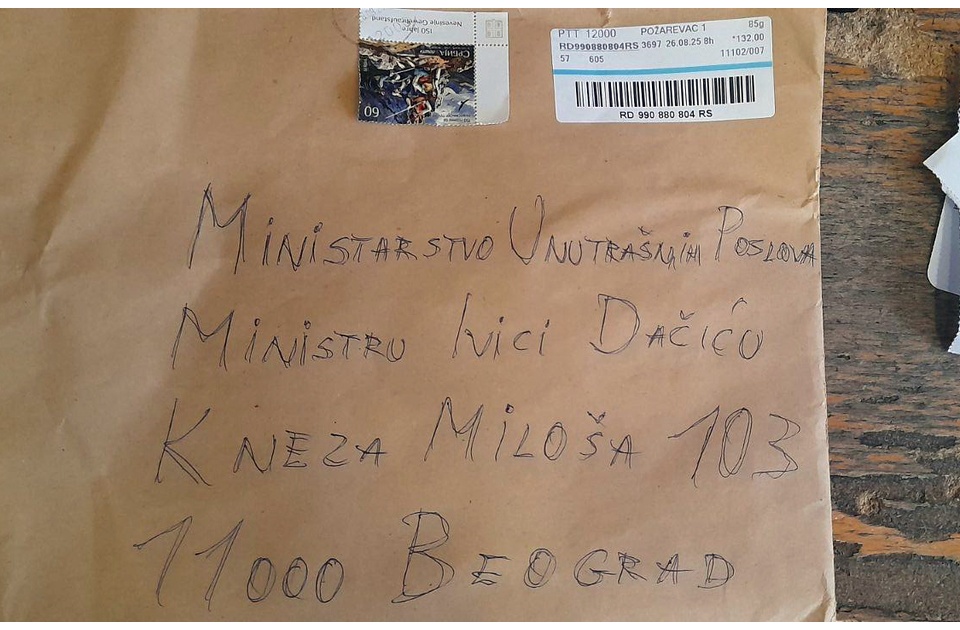 150 Jahre
Nevesinje Gewehraufstand
СРБИЈА
60
PTT 12000 POŽAREVAC 1 85g
RD990880804RS 3697 26.08.25 8h *132,00
57 605 11102/007
RD 990 880 804 RS
Ministarstvo Unutrašnjih Poslova
Ministru Ivici Dačiću
Kneza Miloša 103
11000 Beograd